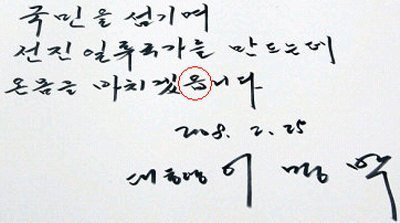 국민을 섬기며
선진일류국가를 만드는데
온몸을 바치겠읍니다
2008. 2. 25
대통령 이 명 박